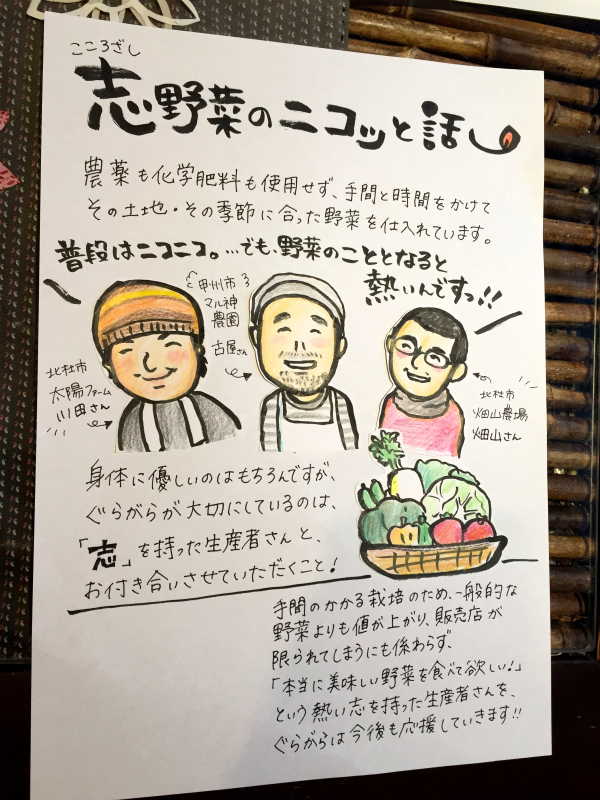 こころざし
志野菜のニコッと話し
農薬も化学肥料も使用せず、手間と時間をかけて
その土地・その季節に合った野菜を仕入れています。
普段はニコニコ。…でも、野菜のこととなると
熱いんですっ!!
北杜市
太陽ファーム
川田さん
甲州市
マル神
農園
古屋さん
北杜市
畑山農場
畑山さん
身体に優しいのはもちろんですが、
ぐらがらが大切にしているのは、
「志」を持った生産者さんと、
お付き合いさせていただくこと!
手間のかかる栽培のため、一般的な
野菜よりも値が上がり、販売店が
限られてしまうにも係わらず、
「本当に美味しい野菜を食べて欲しい!」
という熱い志を持った生産者さんを、
ぐらがらは今後も応援していきます!!